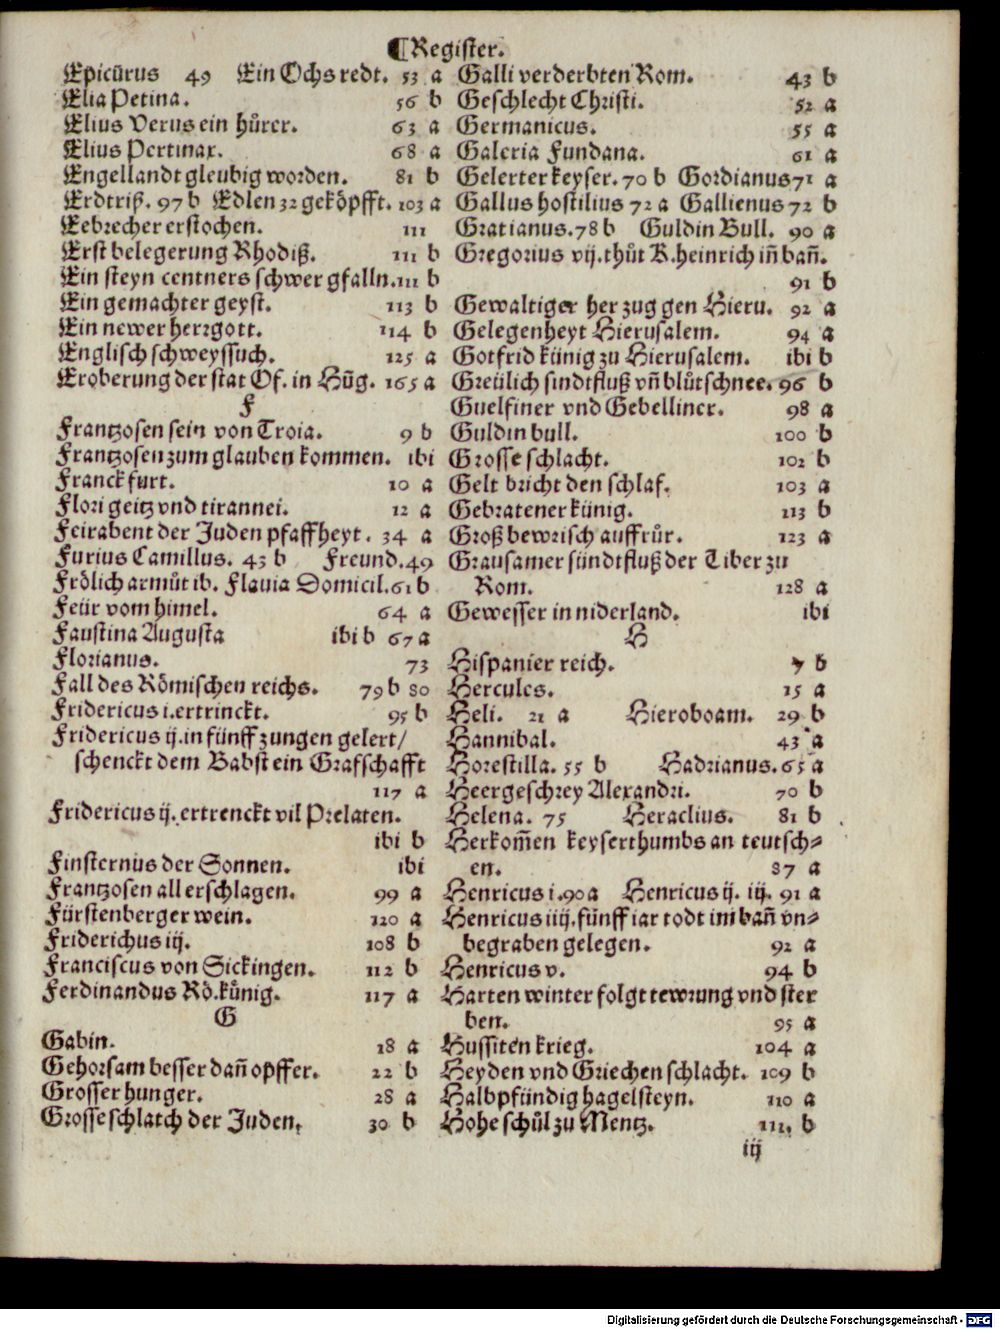 ¶Register.
Epicūrus 49 Ein Ochs redt. 53 a
Elia Petina. 56 b
Elius Verus ein hůrer. 63 a
Elius Pertinax. 68 a
Engellandt gleubig worden. 81 b
Erdtriß. 97 b Edlen 32 geköpfft. 103 a
Eebrecher erstochen. 111
Erst belegerung Rhodiß. 111 b
Ein steyn centners schwer gfalln. 111 b
Ein gemachter geyst. 113 b
Ein newer herrgott. 114 b
Englisch schweyssuch. 125 a
Eroberung der stat Of. in Hūg. 165 a
F
Frantzosen sein von Troia. 9 b
Frantzosen zum glauben kommen. ibi
Franckfurt. 10 a
Flori geitz vnd tirannei. 12 a
Feirabent der Juden pfaffheyt. 34 a
Furius Camillus. 43 b Freund. 49
Frölich armůt ib. Flauia Domicil. 61 b
Feür vom himel. 64 a
Faustina Augusta ibi b 67 a
Florianus. 73
Fall des Römischen reichs. 79 b 80
Fridericus i. ertrinckt. 95 b
Fridericus ij. in fünff zungen gelert/
schenckt dem Babst ein Grafschafft
117 a
Fridericus ij. ertrenckt vil Prelaten.
ibi b
Finsternus der Sonnen. ibi
Frantzosen all erschlagen. 99 a
Fürstenberger wein. 120 a
Friderichus iij. 108 b
Franciscus von Sickingen. 112 b
Ferdinandus Rö. künig. 117 a
G
Gabin. 18 a
Gehorsam besser dañ opffer. 22 b
Grosser hunger. 28 a
Grosse schlatch der Juden. 30 b
Galli verderbten Rom. 43 b
Geschlecht Christi. 52 a
Germanicus. 55 a
Galeria Fundana. 61 a
Gelerter keyser. 70 b Gordianus 71 a
Gallus hostilius 72 a Gallienus 72 b
Gratianus. 78 b Guldin Bull. 90 a
Gregorius vij. thůt K. heinrich iñ bañ.
91 b
Gewaltiger her zug gen Hieru. 92 a
Gelegenheyt Hierusalem. 94 a
Gotfrid künig zu Hierusalem. ibi b
Greülich sindtfluß vñ blůtschnee. 96 b
Guelfiner vnd Gebelliner. 98 a
Guldin bull. 100 b
Grosse schlacht. 102 b
Gelt bricht den schlaf. 103 a
Gebratener künig. 113 b
Groß bewrisch auffrůr. 123 a
Grausamer sündtfluß der Tiber zu
Rom. 128 a
Gewesser in niderland. ibi
H
Hispanier reich. 7 b
Hercules. 15 a
Heli. 21 a Hieroboam. 29 b
Hannibal. 43 a
Horestilla. 55 b Hadrianus. 65 a
Heergeschrey Alexandri. 70 b
Helena. 75 Heraclius. 81 b
Herkom̄en keyserthumbs an teutsch⸗
en. 87 a
Henricus i. 90 a Henricus ij. iij. 91 a
Henricus iiij. fünff iar todt im bañ vn⸗
begraben gelegen. 92 a
Henricus v. 94 b
Harten winter folgt tewrung vnd ster
ben. 95 a
Hussiten krieg. 104 a
Heyden vnd Griechen schlacht. 109 b
Halbpfündig hagelsteyn. 110 a
Hohe schůl zu Mentz. 111. b
iij
Digitalisierung gefördert durch die Deutsche Forschungsgemeinschaft - DFG